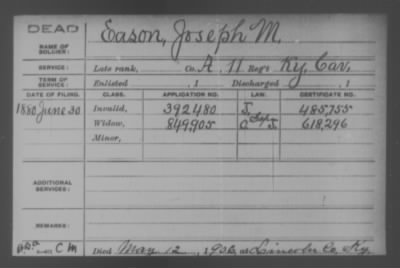 DEAD
NAME OF SOLDIER: Eason, Joseph M.
SERVICE: Late rank, Co. A, 11 Reg't Ky. Cav.
TERM OF SERVICE: Enlisted , 1 Discharged , 1
DATE OF FILING. CLASS. APPLICATION NO. LAW. CERTIFICATE NO.
1880 June 30 Invalid, 392480 485,755
Widow, 849,905 618,296
Minor,
ADDITIONAL SERVICES:
REMARKS:
C M Died May 12, 1906, at Lincoln Co. Ky.